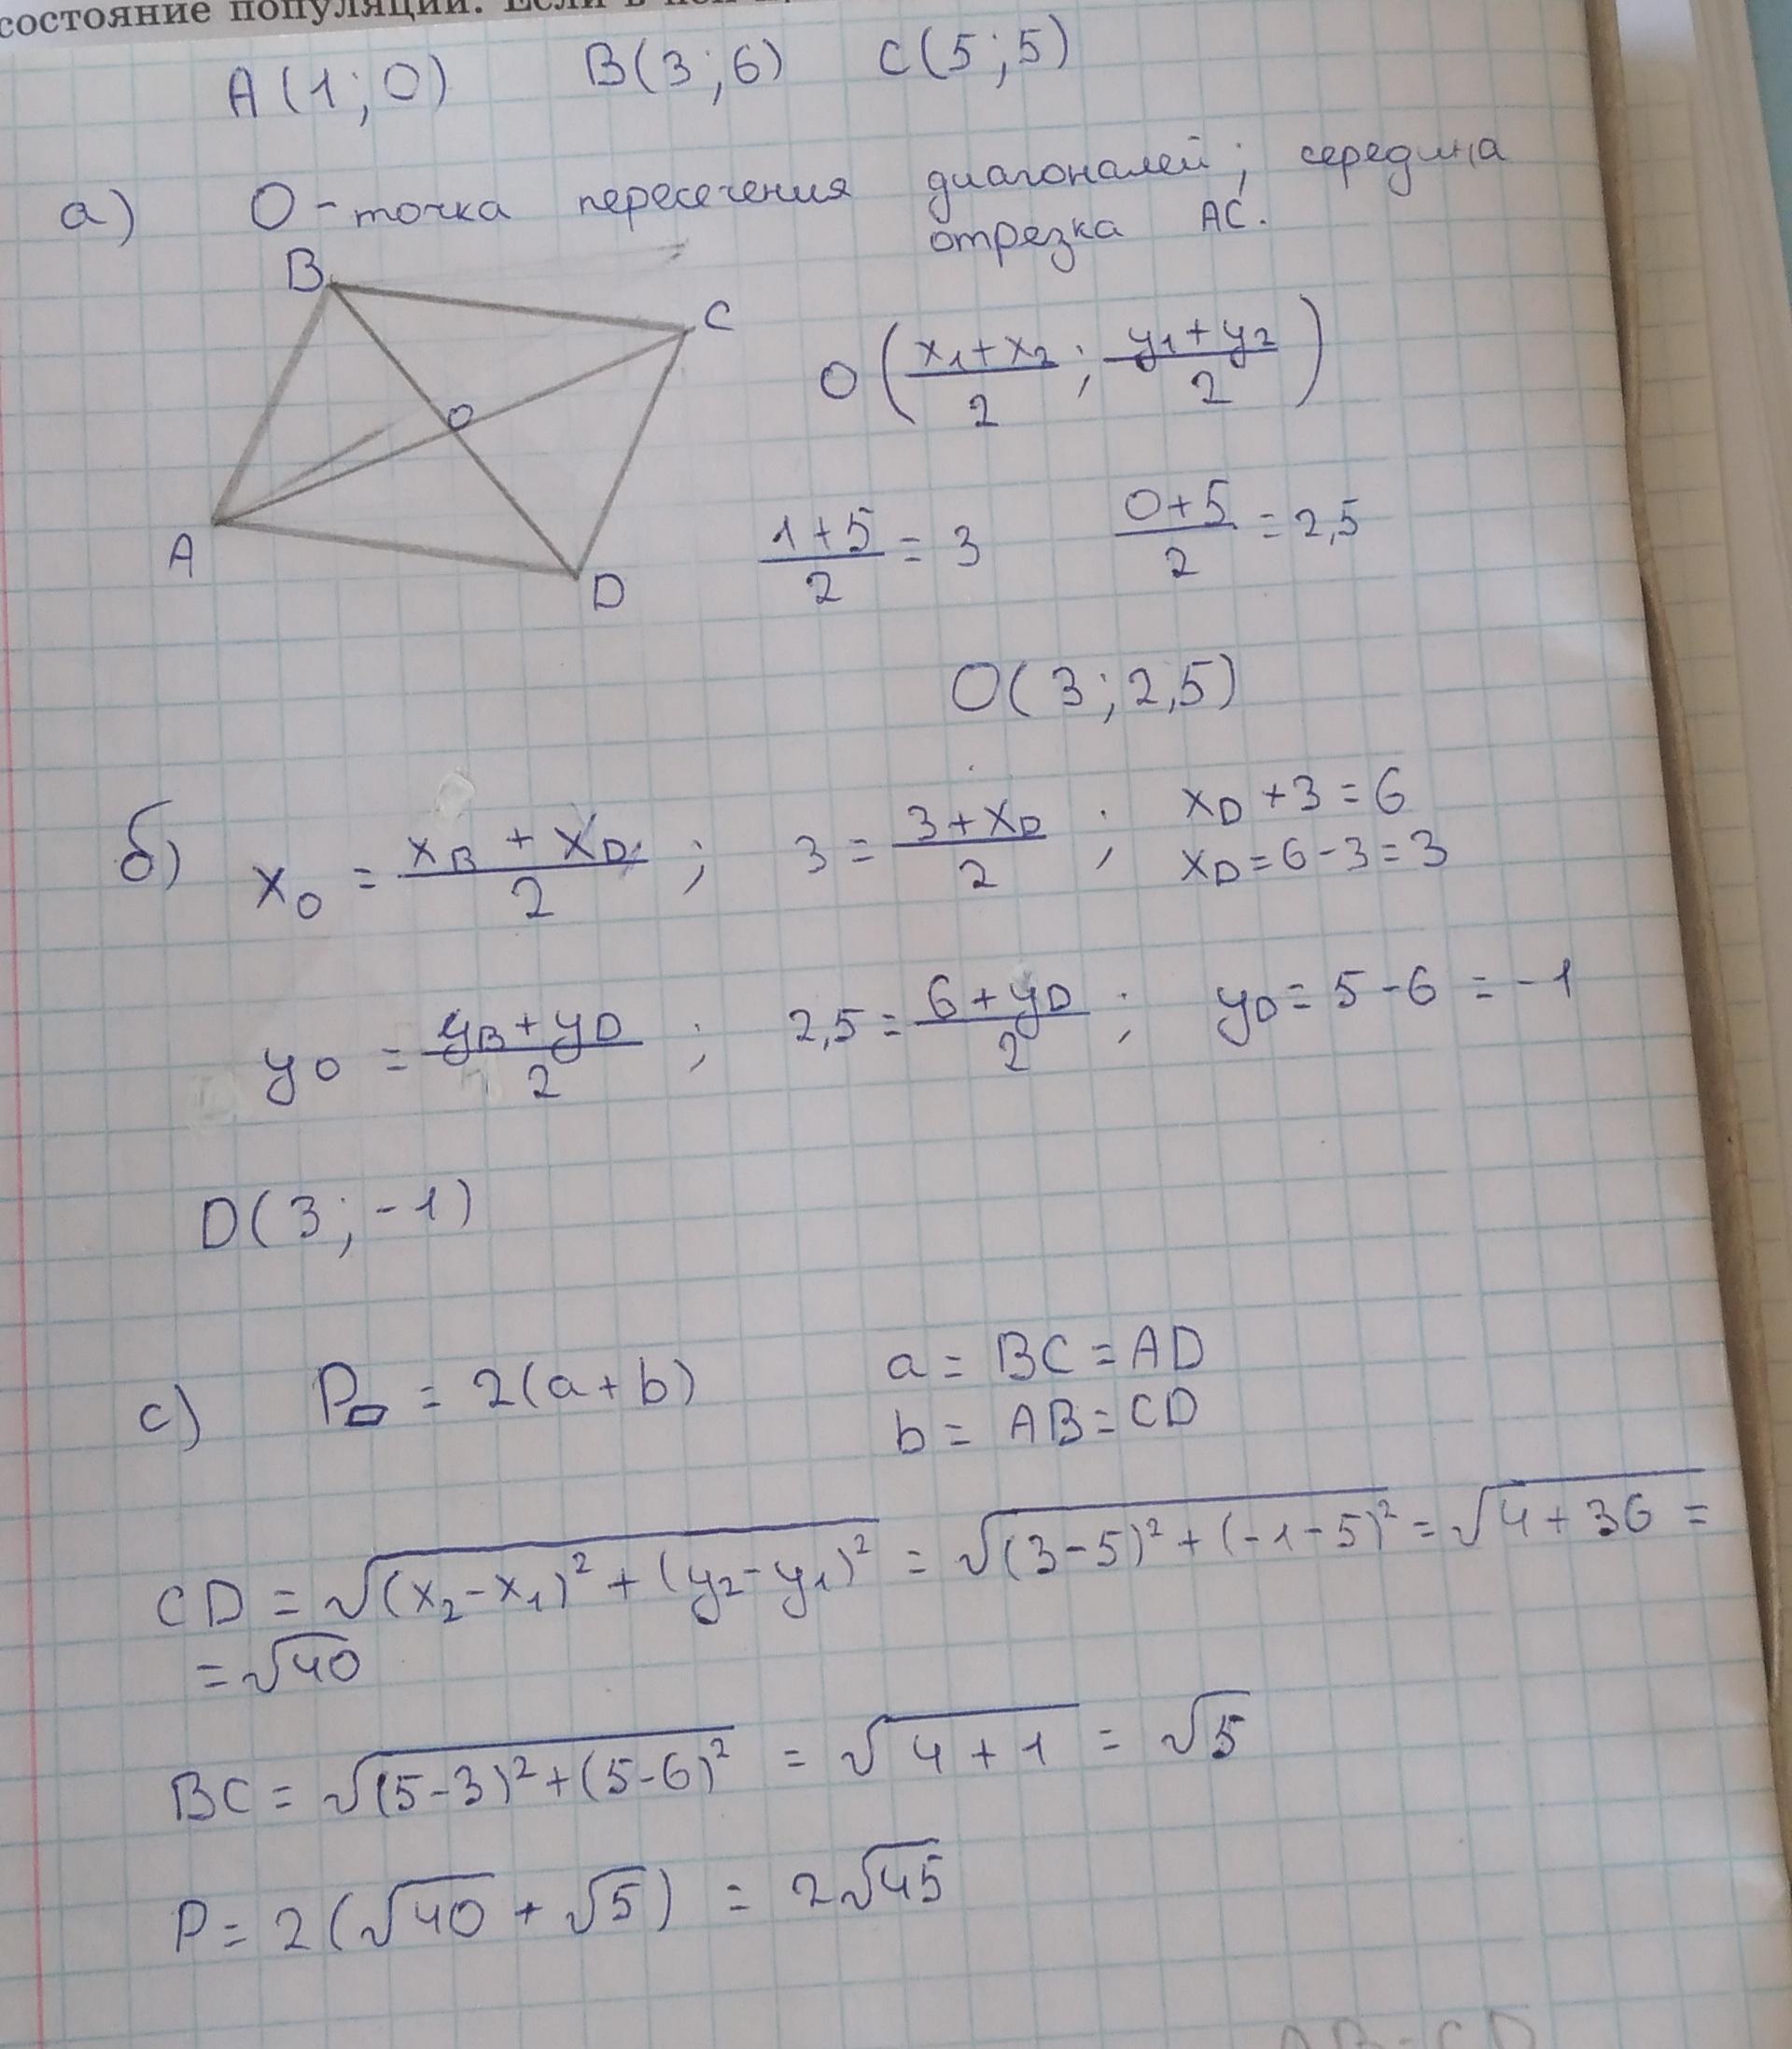 состояние популяции. Если в ней
A(1;0) B(3;6) C(5;5)
а) O-точка пересечения диагоналей; середина
отрезка AC.
B
C
O
A
D
O((x₁+x₂)/2; (y₁+y₂)/2)
(1+5)/2 = 3 (0+5)/2 = 2,5
O(3;2,5)
б) x_O = (x_B + x_D)/2; 3 = (3+x_D)/2; x_D + 3 = 6
x_D = 6-3 = 3
y_O = (y_B + y_D)/2; 2,5 = (6+y_D)/2; y_D = 5-6 = -1
D(3;-1)
c) P▱ = 2(a+b) a = BC = AD
b = AB = CD
CD = √((x₂-x₁)²+(y₂-y₁)²) = √((3-5)²+(-1-5)²) = √(4+36) =
= √40
BC = √((5-3)²+(5-6)²) = √(4+1) = √5
P = 2(√40 + √5) = 2√45
AB=CD